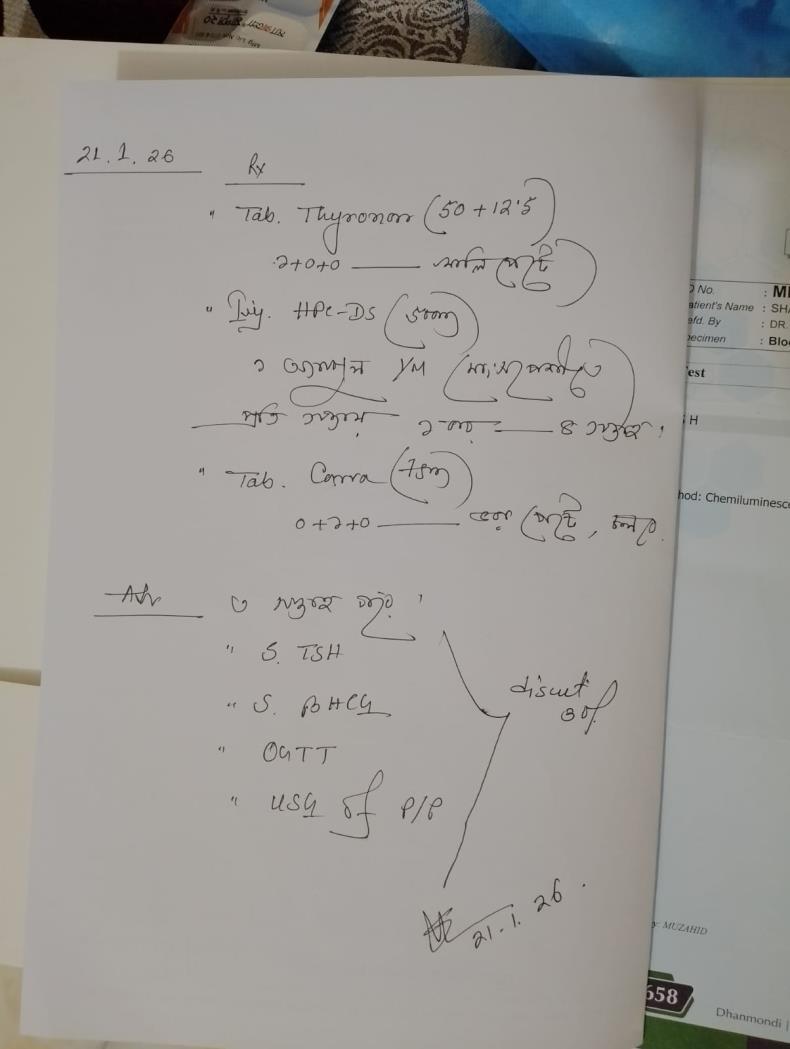 21.1.26
Rx
" Tab. Thyronor (50+12.5)
১+০+০ — খালি পেটে
" Inj. HPC-DS (500mg)
১ এম্পুল I/M (মাংসপেশীতে)
প্রতি সপ্তাহে ১ বার — ৪ সপ্তাহ।
" Tab. Carva (75mg)
০+১+০ — ভরা পেটে, চলবে.
Adv
৩ সপ্তাহ পর।
" S. TSH
" S. βHCG
" OGTT
" USG of P/P
discount
30%
21.1.26.
D No. : MI
atient's Name : SHA
efd. By : DR.
pecimen : Bloo
est
H
hod: Chemiluminesce
y: MUZAHID
658
Dhanmondi |